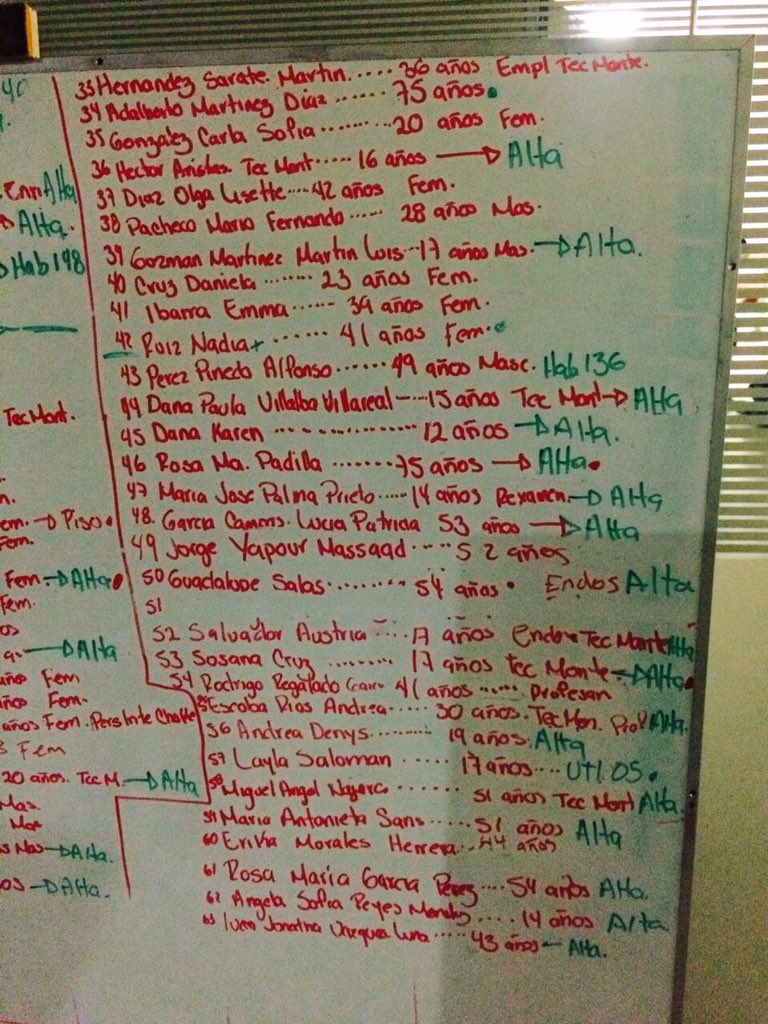 40
Enri Alta
Alta.
Hab 198
Tec Mont.
em. → Piso.
Fem.
Fem. → Alta
Fem.
→ Alta
Fem
Fem.
años Fem. Persinte Choffe
Fem
20 años. Tec M. → Alta
Mas.
Mas
Mas → Alta.
→ Alta.
33 Hernandez Sarate. Martin. .... 36 años Empl Tec Monte.
34 Adalberto Martinez Diaz ...... 75 años.
35 Gonzalez Carla Sofia ........ 20 años Fem.
36 Hector Aristas. Tec Mont ..... 16 años → Alta
37 Diaz Olga Lisette .... 42 años Fem.
38 Pacheco Mario Fernando ..... 28 años Mas.
39 Gozman Martinez Martin Luis .. 17 años Mas. → Alta.
40 Cruz Daniela ....... 23 años Fem.
41 Ibarra Emma ...... 39 años Fem.
42 Ruiz Nadia ....... 41 años Fem.
43 Perez Pinedo Alfonso ...... 49 años Masc. Hab 136
44 Dana Paula Villalba Villareal .... 15 años Tec Mont → Alta
45 Dana Karen ............... 12 años → Alta.
46 Rosa Ma. Padilla ....... 75 años → Alta.
47 Maria Jose Palma Prieto ..... 14 años → Alta
48. Garcia Lucia Patricia 53 años → Alta
49 Jorge Yapour Massaad .... 52 años
50 Guadalupe Salas ........ 54 años. Endos Alta
51
52 Salvador Austria .... 17 años Endos Tec Monte Alta
53 Sosana Cruz ......... 17 años Tec Monte → Alta.
54 Rodrigo Regalado 41 años ...... Profesan
55 Escoba Rios Andrea .... 30 años. Tec Mon. Prof Alta.
56 Andrea Denys ......... 19 años. Alta
57 Layla Saloman .... 17 años ... UTI OS.
58 Miguel Angel ....... 51 años Tec Mont Alta.
59 Maria Antonieta Sans ..... 51 años Alta
60 Morales Herrera .. 44 años
61 Rosa Maria Garcia Perez .... 54 años Alta.
62 Angela Sofia Reyes .... 14 años Alta
63 ..... 43 años - Alta.